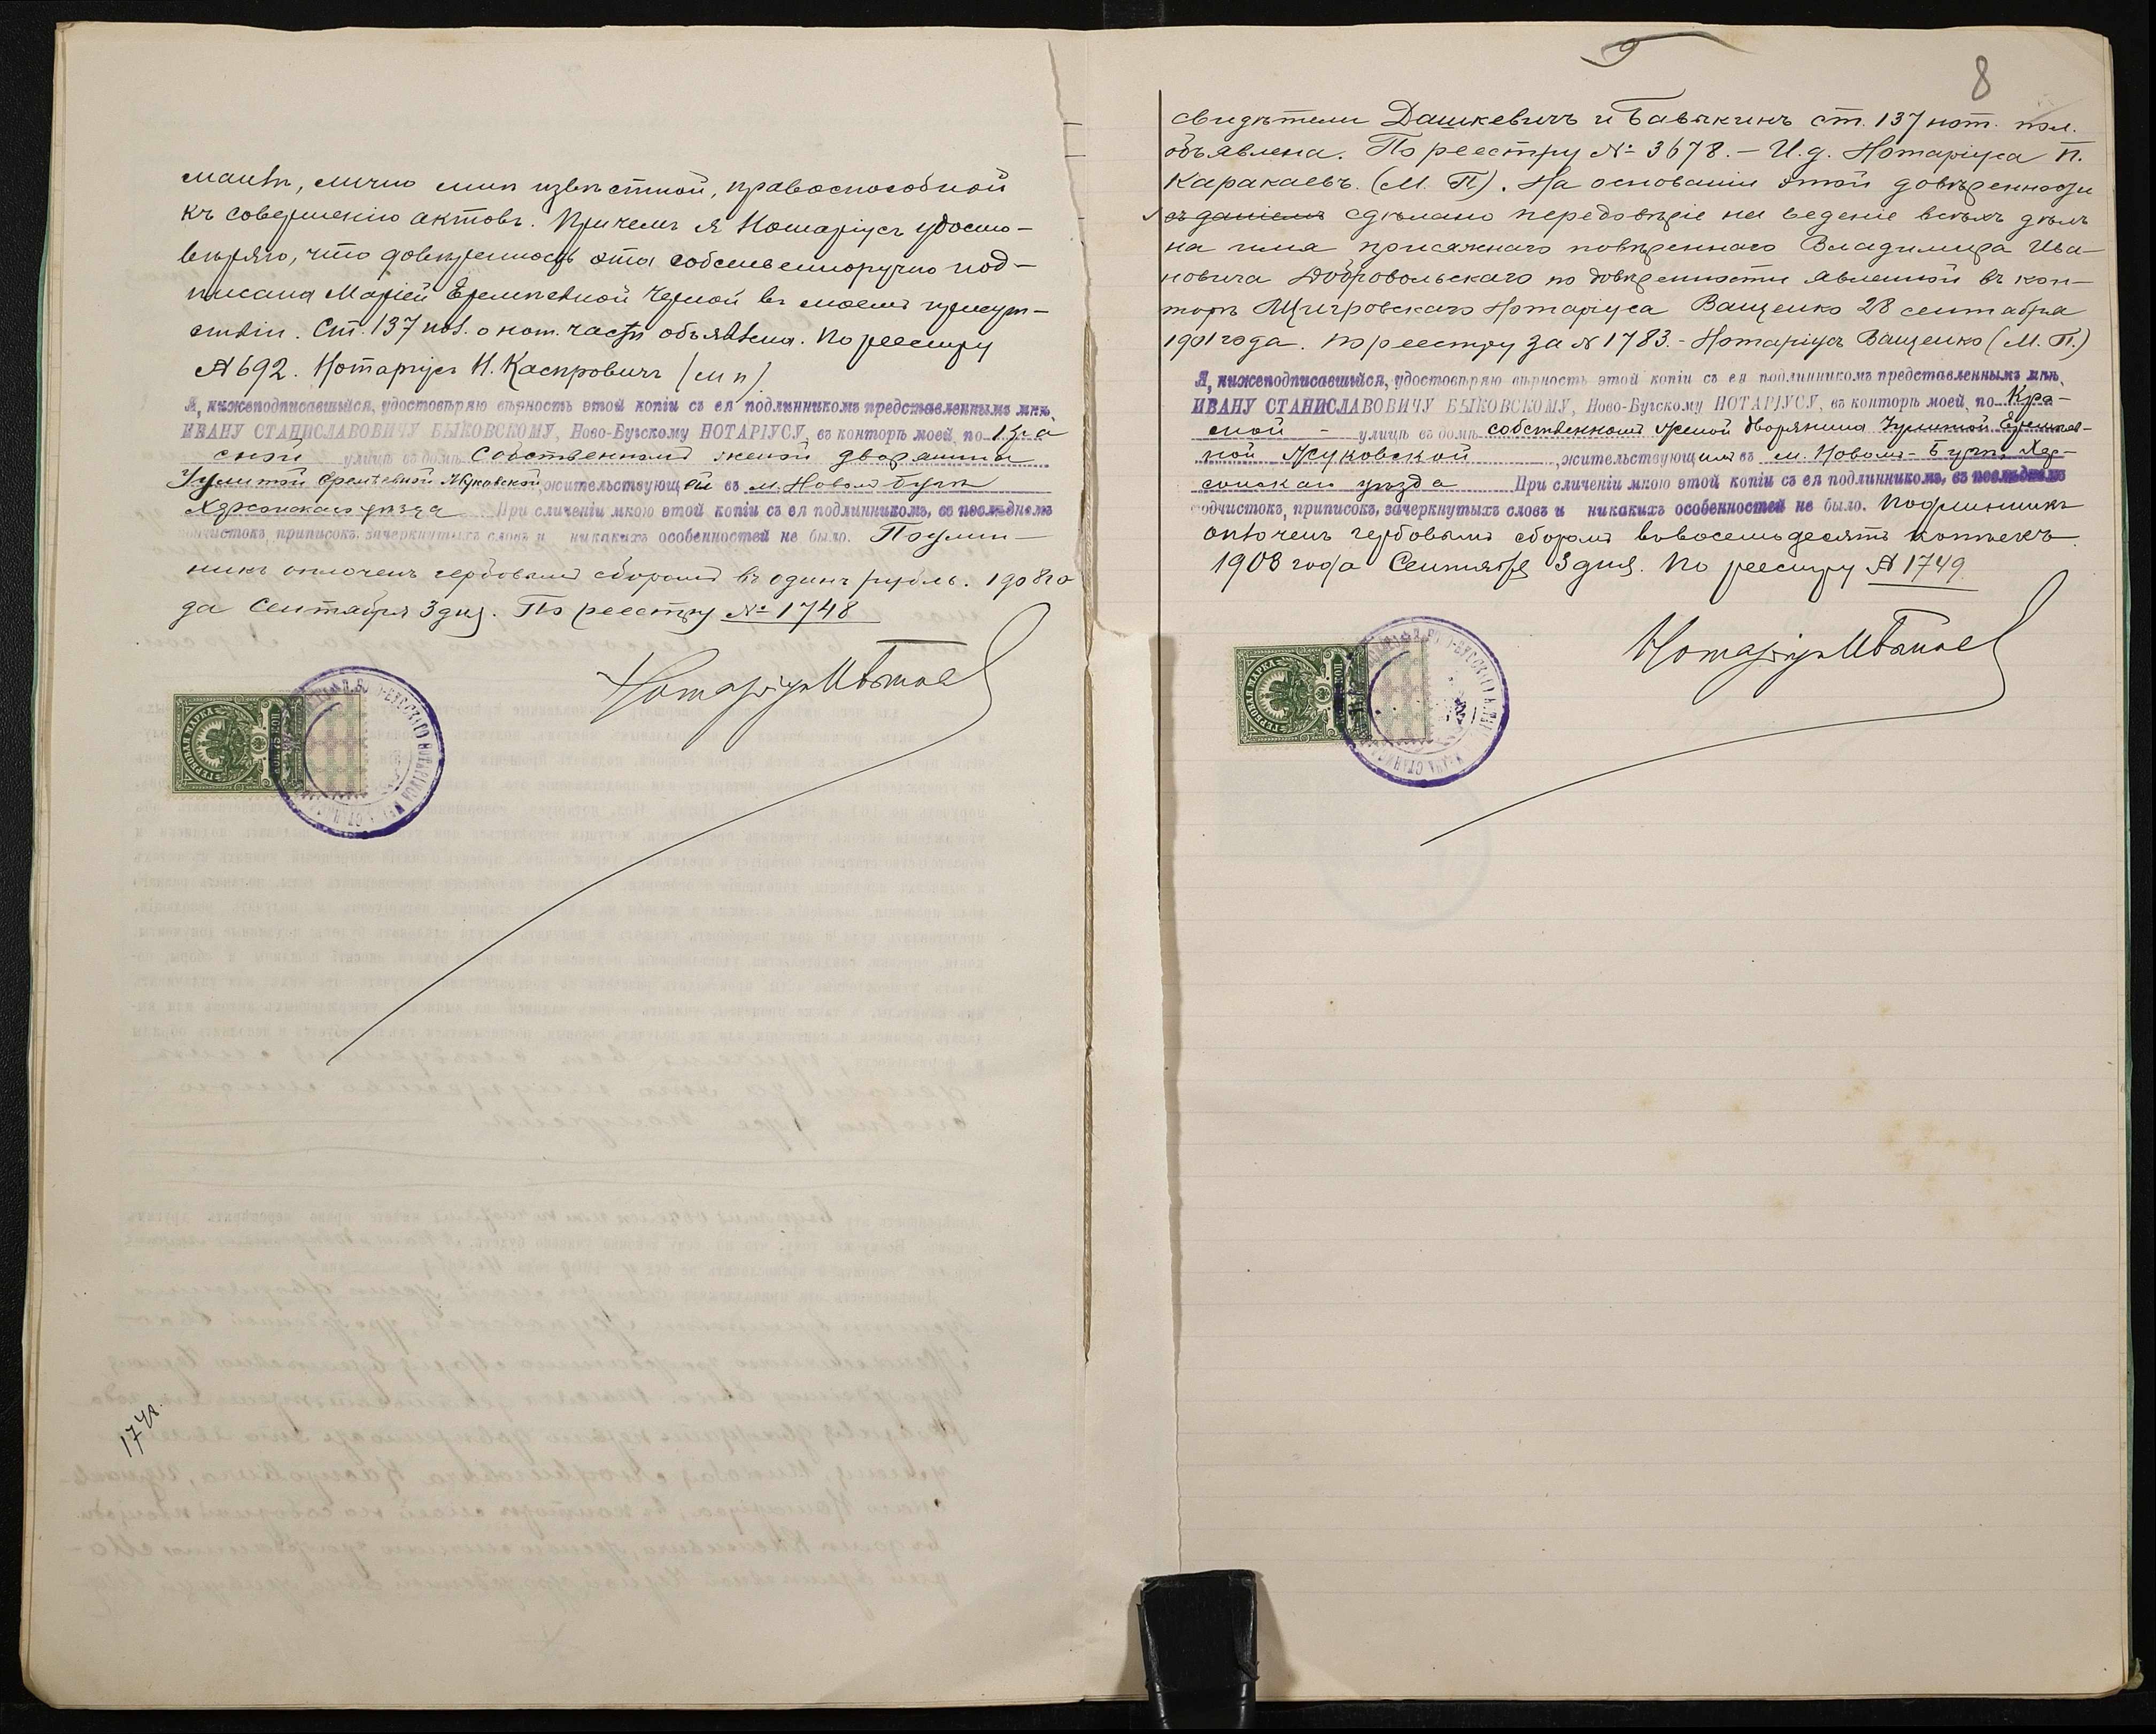 маить, лично мнѣ извѣстной, правоспособной
къ совершенію актовъ. Причемъ я Нотаріусъ удосто-
вѣряю, что довѣренность эта собственноручно под-
писана Маріей Еремѣевной Черной въ моемъ присут-
ствіи. Ст. 137 пол. о нот. части объявлена. По реестру
№ 692. Нотаріусъ И. Каспровичъ (м п).
Я, нижеподписавшійся, удостовѣряю вѣрность этой копіи съ ея подлинникомъ представленнымъ мнѣ,
ИВАНУ СТАНИСЛАВОВИЧУ БЫКОВСКОМУ, Ново-Бугскому НОТАРІУСУ, въ конторѣ моей, по Кра
сной улицѣ въ домѣ собственномъ женой дворянина
Еремѣевной Жуковской, жительствующей въ м. Новомъ Бугѣ
Херсонскаго уѣзда При сличеніи мною этой копіи съ ея подлинникомъ, въ послѣднемъ
подчистокъ, приписокъ, зачеркнутыхъ словъ и никакихъ особенностей не было. Подлин-
никъ оплоченъ гербовымъ сборомъ въ одинъ рубль. 1908 го
да Сентября 3 дня. По реестру № 1748
Нотаріусъ
ГЕРБОВАЯ МАРКА
1748.
8
свидѣтели Дашкевичъ и Бавыкинъ ст. 137 нот. пол.
объявлена. По реестру № 3678. - И. д. Нотаріуса П.
Каракаевъ. (М. П.). На основаніи этой довѣренности
сдѣлано передовѣріе на веденіе всѣхъ дѣлъ
на имя присяжнаго повѣреннаго Владимира Ива-
новича Добровольскаго по довѣренности явленной въ кон-
торѣ Щигровскаго Нотаріуса Ващенко 28 сентября
1901 года. По реестру за № 1783. - Нотаріусъ Ващенко (М. П.)
Я, нижеподписавшійся, удостовѣряю вѣрность этой копіи съ ея подлинникомъ представленнымъ мнѣ,
ИВАНУ СТАНИСЛАВОВИЧУ БЫКОВСКОМУ, Ново-Бугскому НОТАРІУСУ, въ конторѣ моей, по Кра-
сной - улицѣ въ домѣ собственномъ женой дворянина Еремѣев-
ной Жуковской, жительствующимъ въ м. Новомъ-Бугѣ Хер-
сонскаго уѣзда При сличеніи мною этой копіи съ ея подлинникомъ, въ послѣднемъ
подчистокъ, приписокъ, зачеркнутыхъ словъ и никакихъ особенностей не было. Подлинникъ
оплоченъ гербовымъ сборомъ въ восемьдесятъ копѣекъ.
1908 года Сентября 3 дня. По реестру № 1749
Нотаріусъ
ГЕРБОВАЯ МАРКА